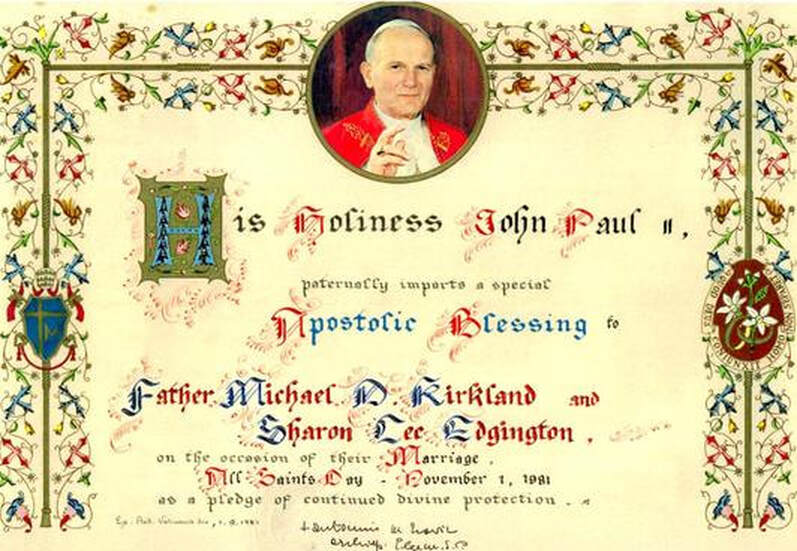 His Holiness John Paul II,
paternally imparts a special
Apostolic Blessing to
Father Michael D Kirkland and
Sharon Lee Edgington.
on the occasion of their Marriage,
All Saints Day - November 1, 1981
as a pledge of continued divine protection.